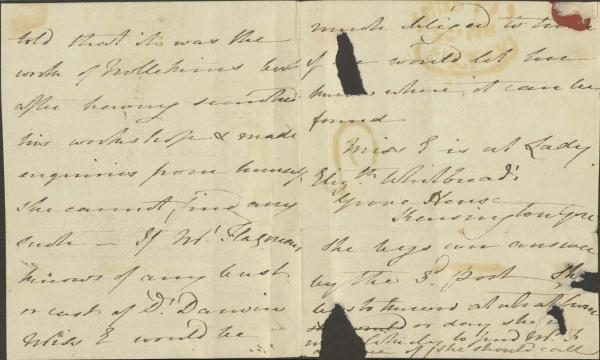 told that it was the
work of Nollekins but
after having searched
his workshop & made
enquiries from himself
she cannot find any
such — If Mr. Flaxman
knows of any bust
or cast of Dr. Darwin
Miss E would be
much obliged to him
if he would let her
know where it can be
found
Miss E is at Lady
Elizth. Whitbread's
Grove House
Kensington Gore
she begs an answer
by the 3d. post She
begs to know at what hour
or day she is
likely to find Mr. F
at home if she should call